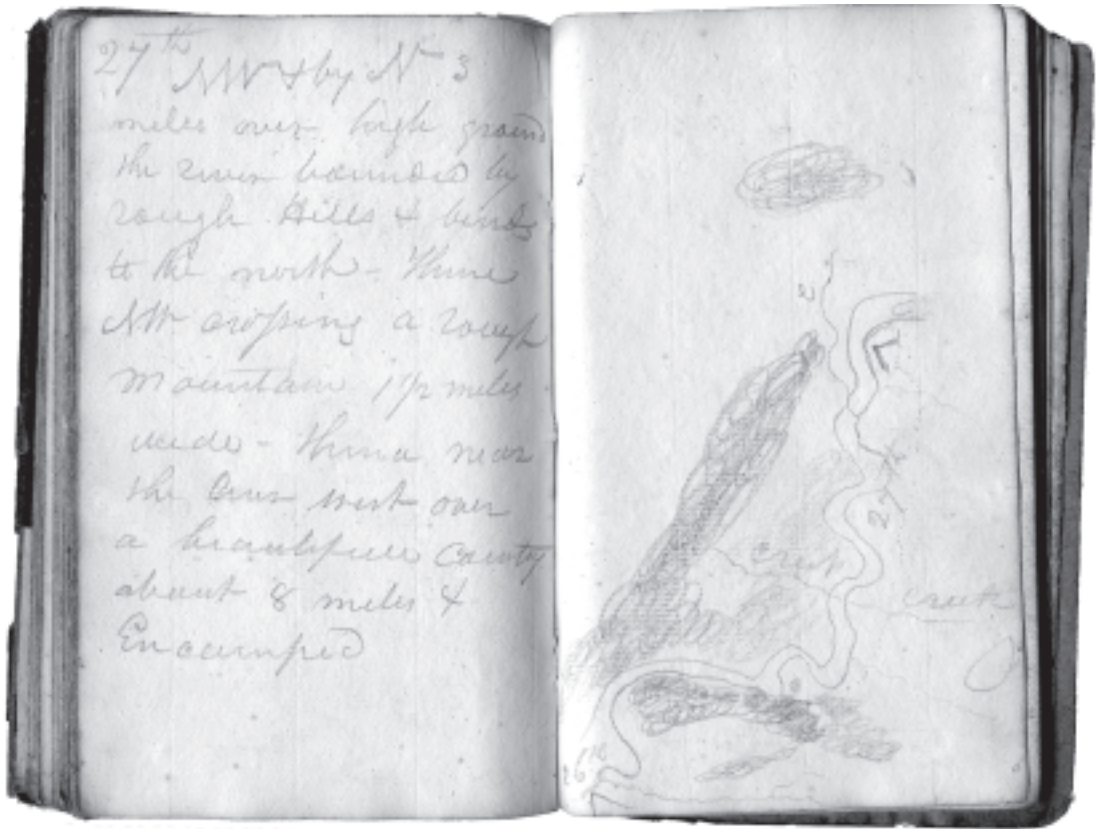 27th NW & by N 3
miles over high ground
the river bounded by
rough Hills & bends
to the north - Thence
NW crossing a rough
mountain 1 1/2 miles
wide - thence near
the river west over
a beautifull country
about 8 miles &
Encamped
Creek
Creek
26th